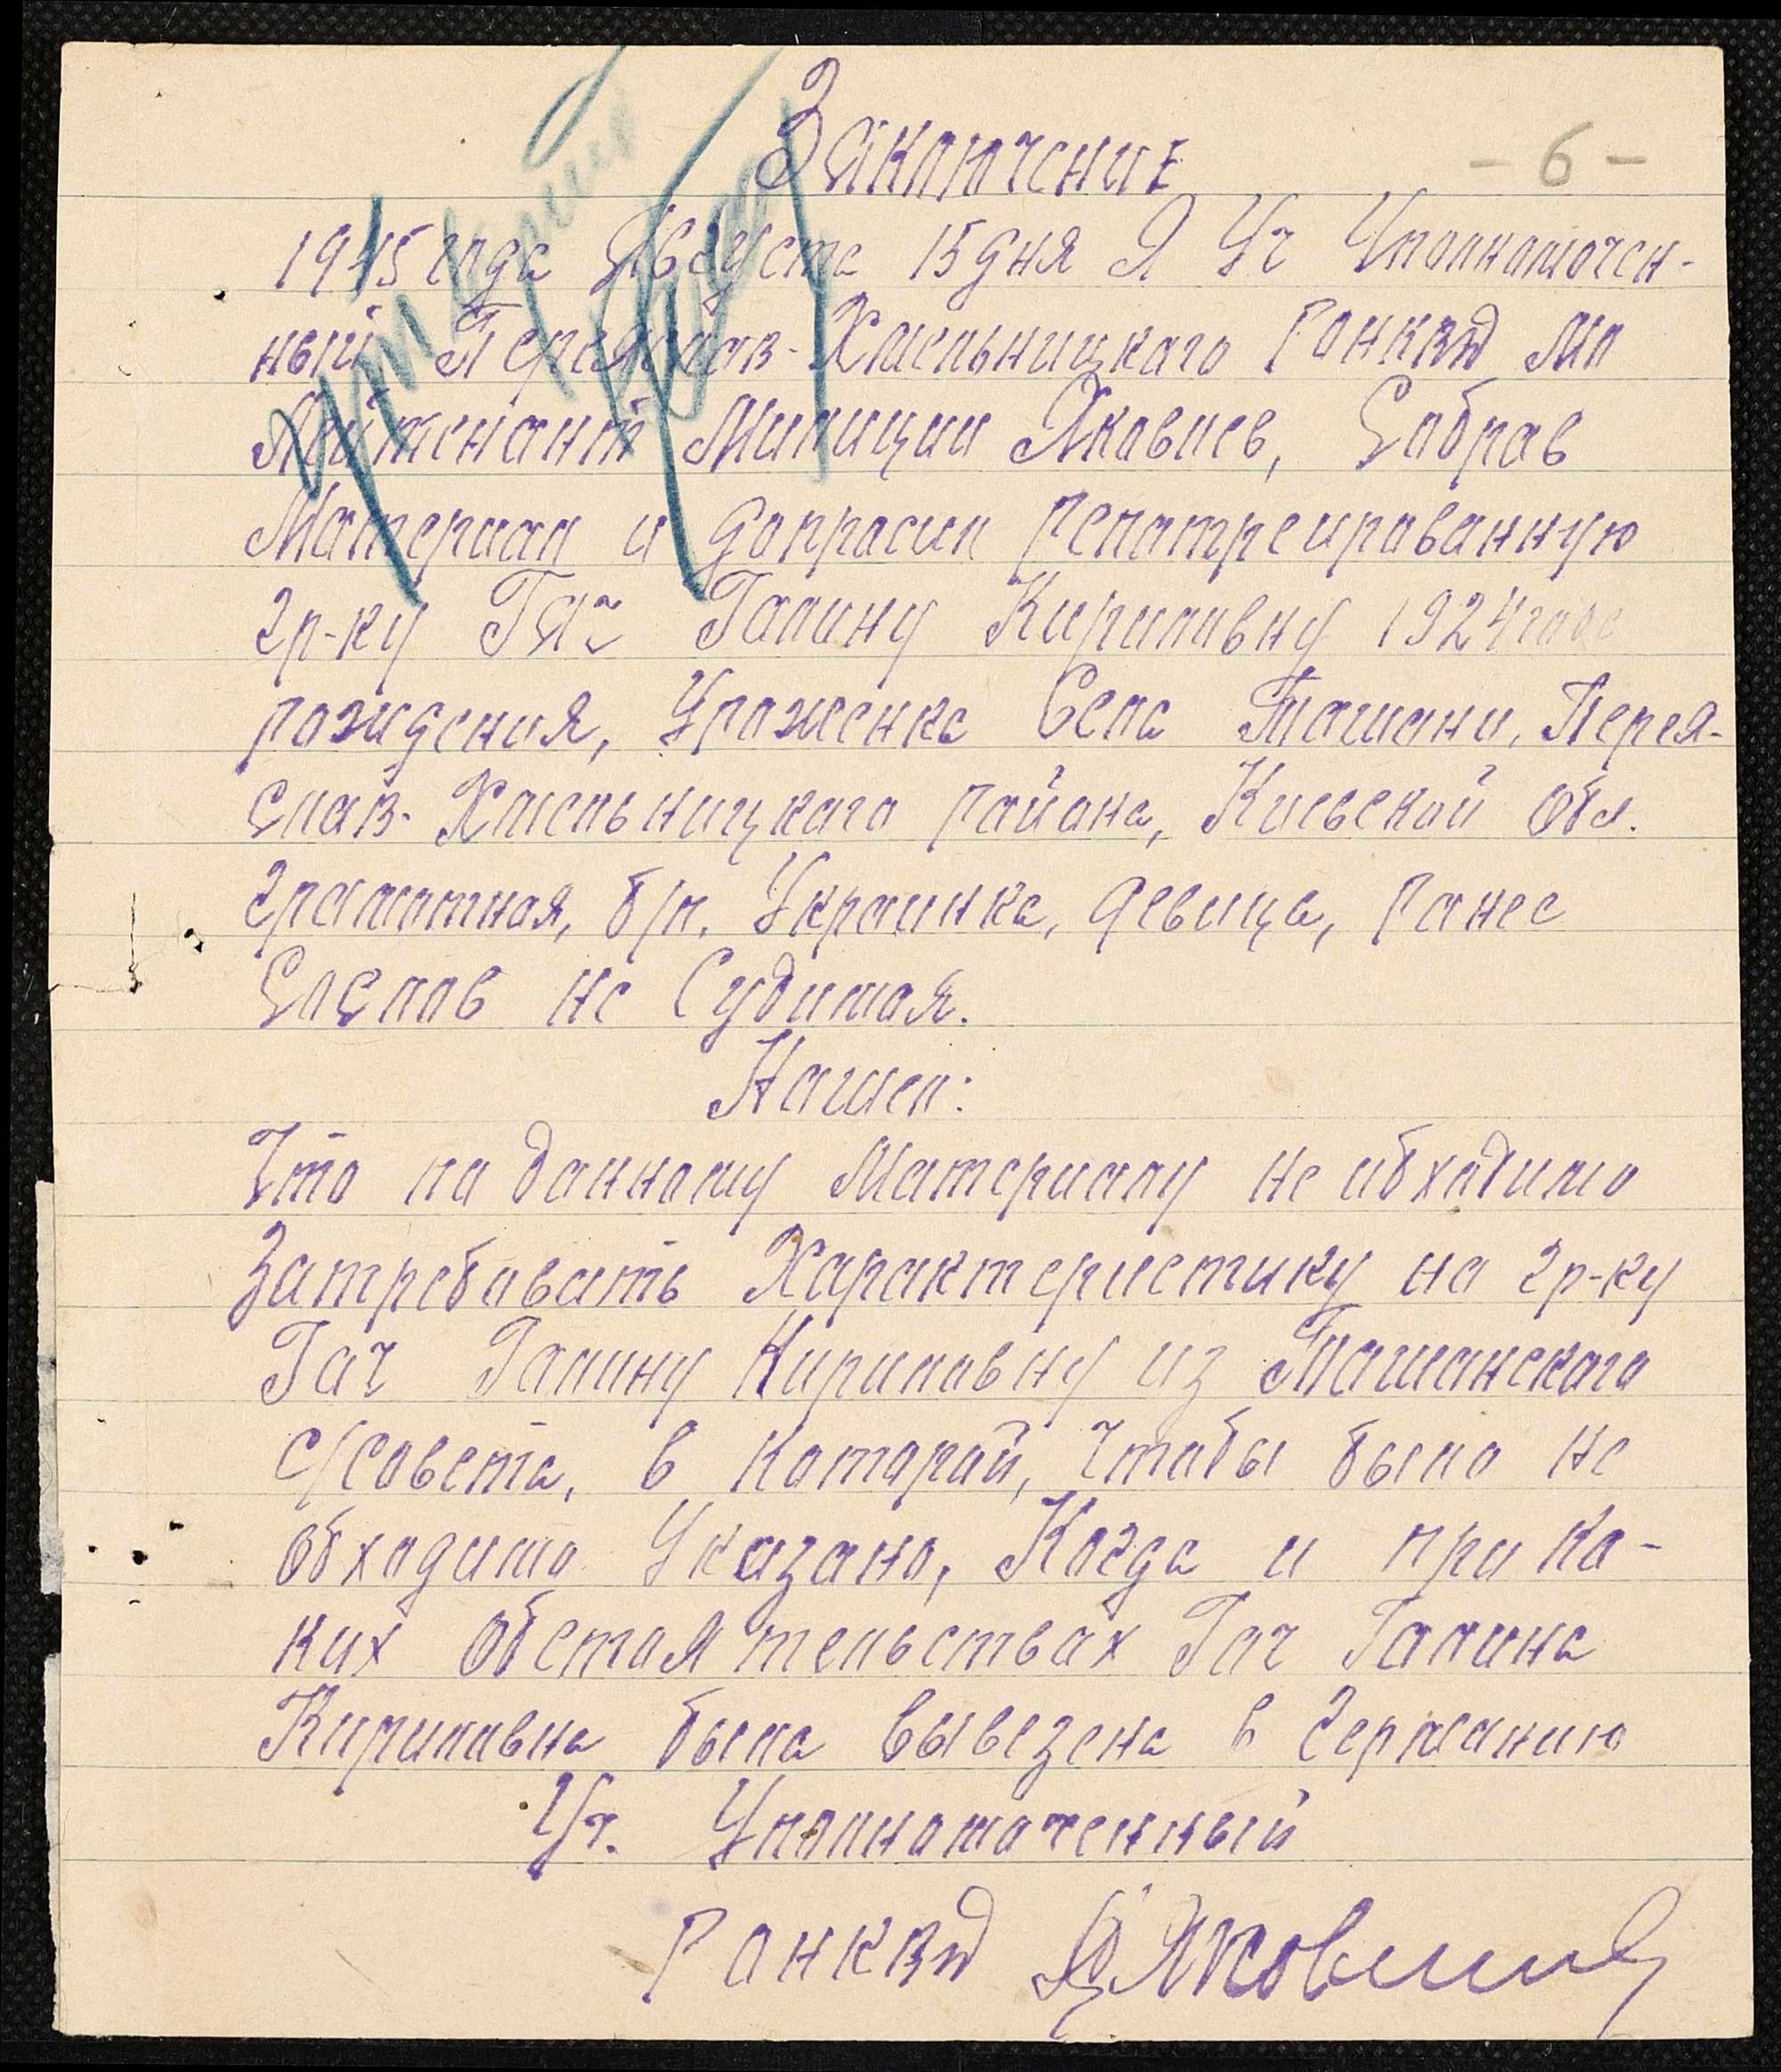 Заключение
- 6 -
1945 года Августа 15 дня Я Уч Уполномочен-
ный Переяслав-Хмельницкаго РОНКВД Мл
Лейтенант Милиции Яковлев, Собрав
Материал и допросил Репатреированную
гр-ку Гач Галину Кириловну 1924 года
рождения, Уроженка Села Ташани, Перея-
слав-Хмельницкаго района, Киевской обл.
грамотная, б/п. Украинка, девица, Ранее
Со слов не Судимая.
Нашел:
Что по данному Материалу не обходимо
Затребовать Характеристику на гр-ку
Гач Галину Кириловну из Ташанскаго
с/совета, в каторай, чтобы было не
обходимо Указано, Когда и при ка-
ких обстоятельствах Гач Галина
Кириловна была вывезена в Германию
Уч. Уполномоченный
РОНКВД Яковлев